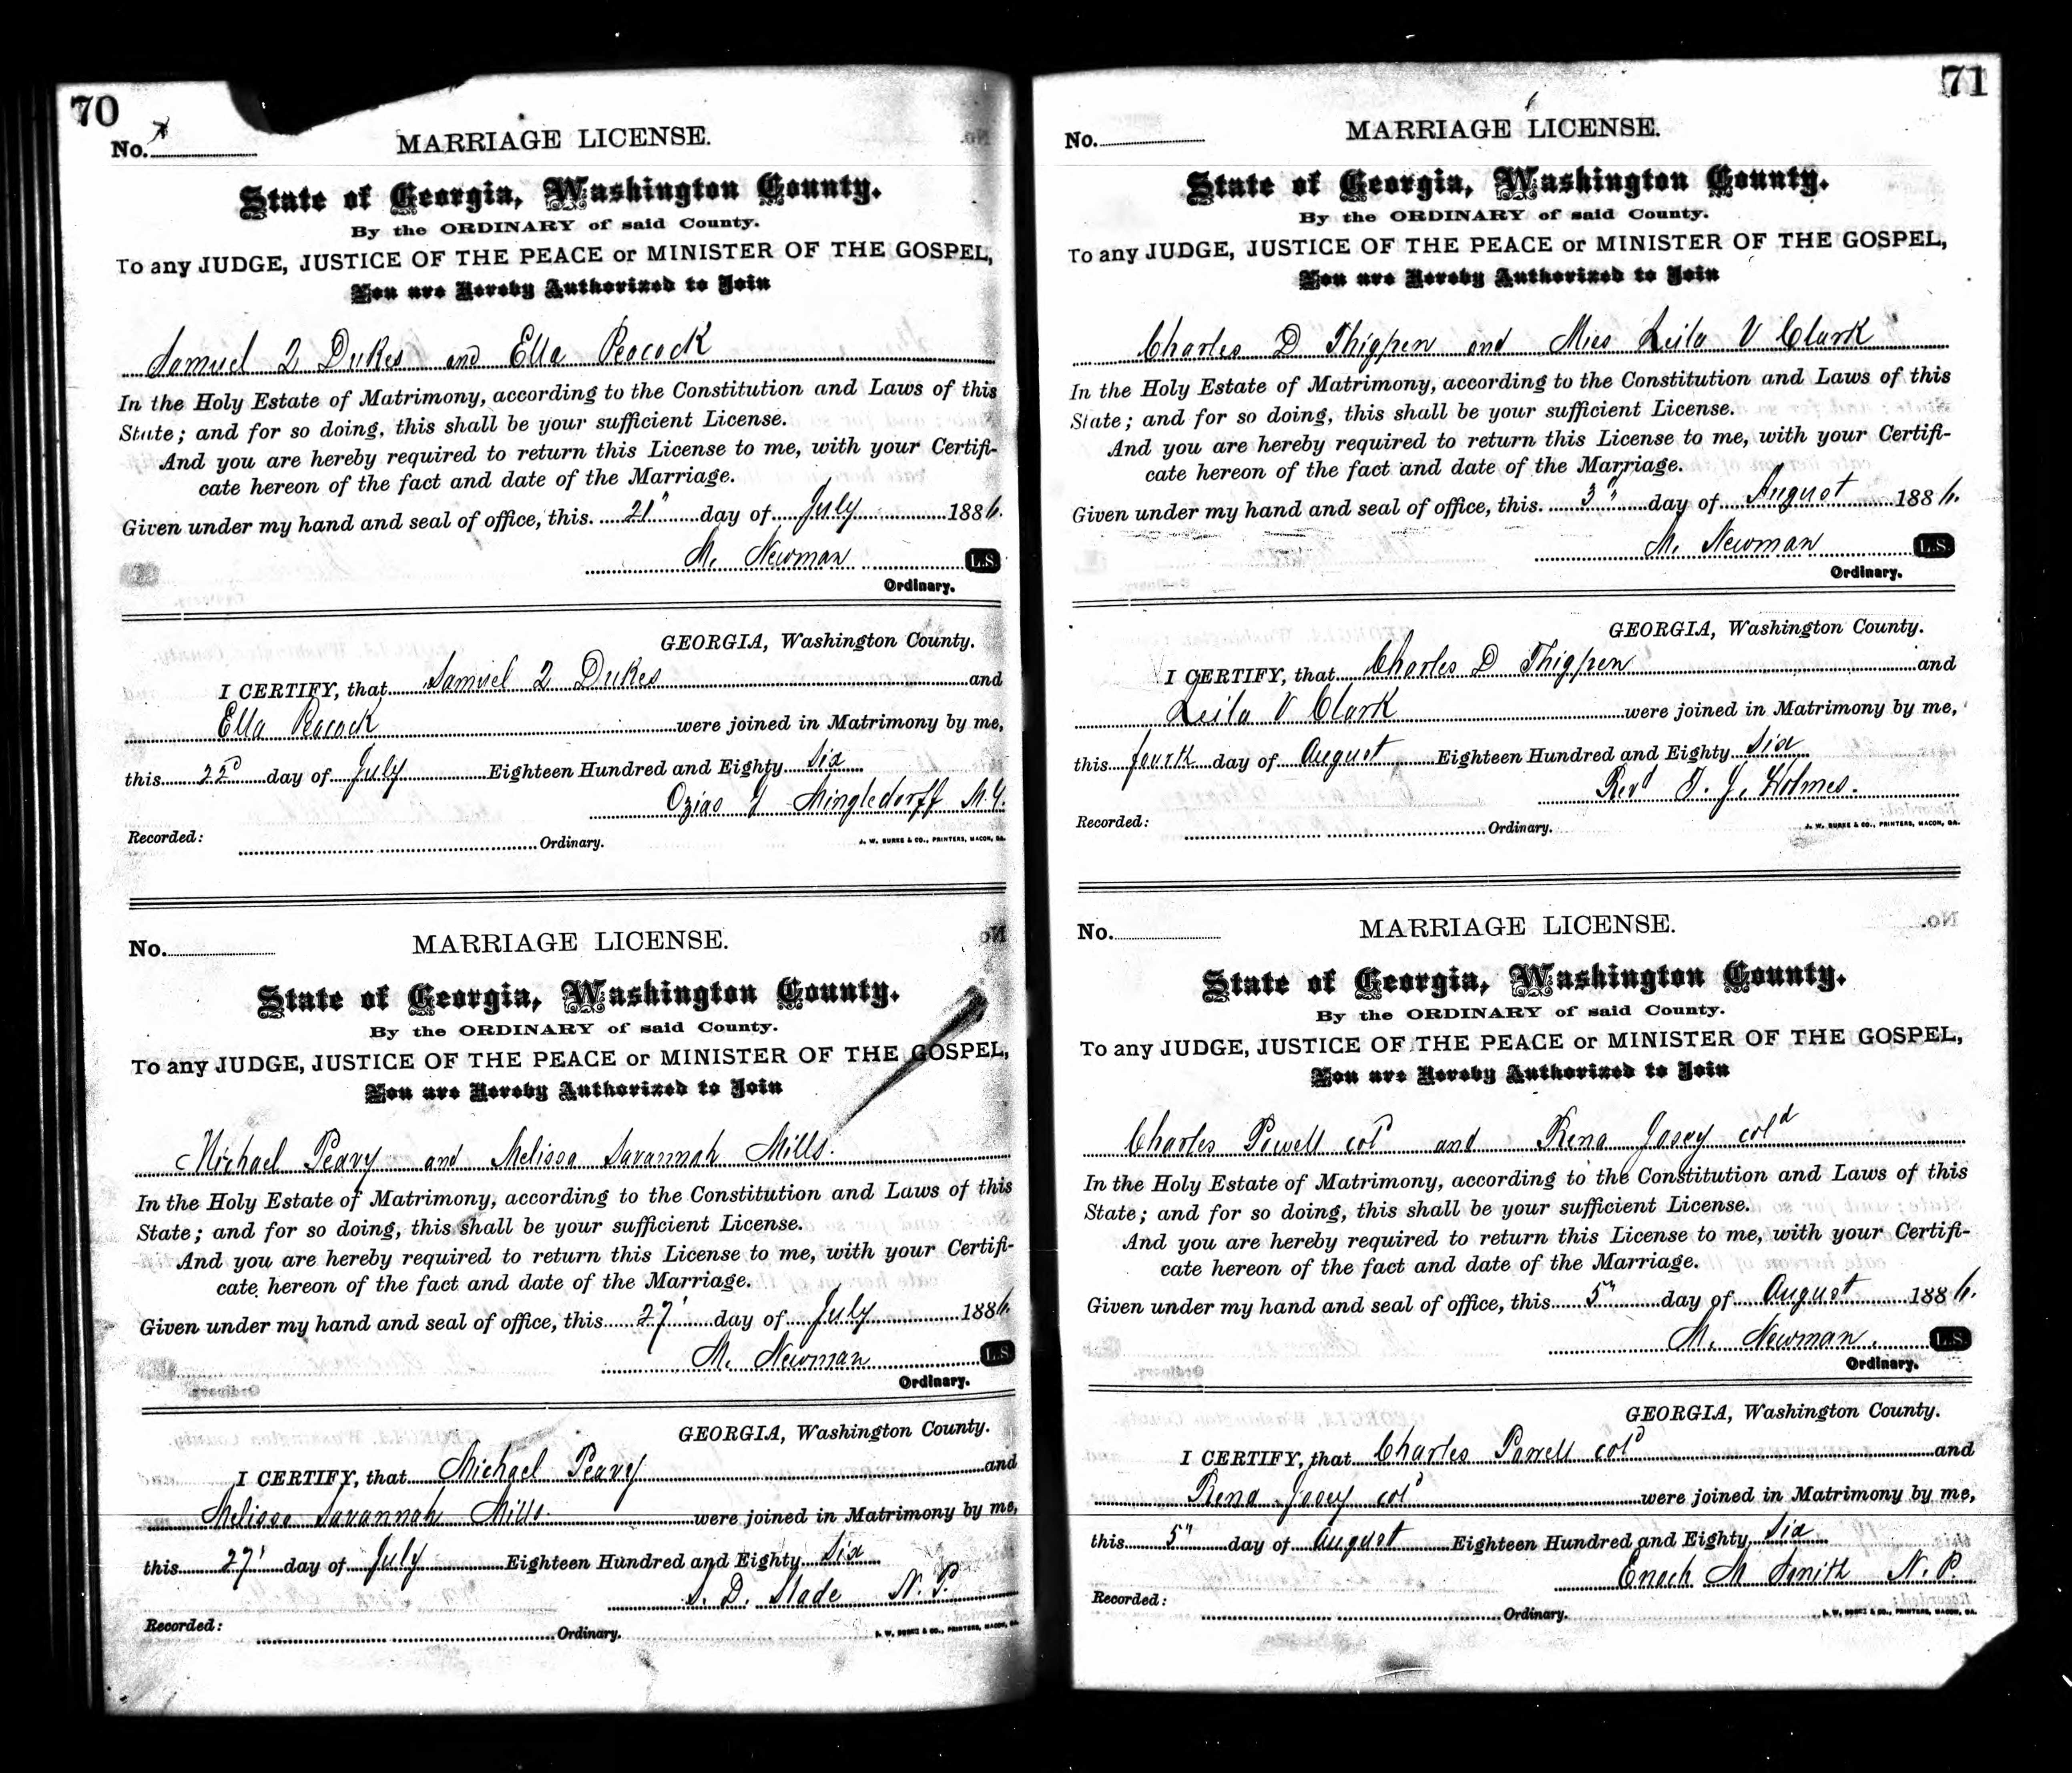 70
No.
MARRIAGE LICENSE.
State of Georgia, Washington County.
By the ORDINARY of said County.
To any JUDGE, JUSTICE OF THE PEACE or MINISTER OF THE GOSPEL,
You are Hereby Authorized to Join
Samuel Q Dukes and Ella Peacock
In the Holy Estate of Matrimony, according to the Constitution and Laws of this
State; and for so doing, this shall be your sufficient License.
And you are hereby required to return this License to me, with your Certifi-
cate hereon of the fact and date of the Marriage.
Given under my hand and seal of office, this 21" day of July 1886.
M. Newman L.S.
Ordinary.
GEORGIA, Washington County.
I CERTIFY, that Samuel Q Dukes and
Ella Peacock were joined in Matrimony by me,
this 22d day of July Eighteen Hundred and Eighty Six
Ozias Mingledorff M.G.
Recorded: Ordinary.
J. W. BURKE & CO., PRINTERS, MACON, GA.
No.
MARRIAGE LICENSE.
State of Georgia, Washington County.
By the ORDINARY of said County.
To any JUDGE, JUSTICE OF THE PEACE or MINISTER OF THE GOSPEL,
You are Hereby Authorized to Join
Michael Peavy and Melissa Savannah Mills.
In the Holy Estate of Matrimony, according to the Constitution and Laws of this
State; and for so doing, this shall be your sufficient License.
And you are hereby required to return this License to me, with your Certifi-
cate hereon of the fact and date of the Marriage.
Given under my hand and seal of office, this 27' day of July 1886.
M. Newman L.S.
Ordinary.
GEORGIA, Washington County.
I CERTIFY, that Michael Peavy and
Melissa Savannah Mills. were joined in Matrimony by me,
this 27' day of July Eighteen Hundred and Eighty Six
S. D. Slade N. P.
Recorded: Ordinary.
J. W. BURKE & CO., PRINTERS, MACON, GA.
71
No.
MARRIAGE LICENSE.
State of Georgia, Washington County.
By the ORDINARY of said County.
To any JUDGE, JUSTICE OF THE PEACE or MINISTER OF THE GOSPEL,
You are Hereby Authorized to Join
Charles D Thigpen and Miss Leila V Clark
In the Holy Estate of Matrimony, according to the Constitution and Laws of this
State; and for so doing, this shall be your sufficient License.
And you are hereby required to return this License to me, with your Certifi-
cate hereon of the fact and date of the Marriage.
Given under my hand and seal of office, this 3" day of August 1886.
M. Newman L.S.
Ordinary.
GEORGIA, Washington County.
I CERTIFY, that Charles D Thigpen and
Leila V Clark were joined in Matrimony by me,
this fourth day of August Eighteen Hundred and Eighty Six
Revd T. J. Holmes.
Recorded: Ordinary.
J. W. BURKE & CO., PRINTERS, MACON, GA.
No.
MARRIAGE LICENSE.
State of Georgia, Washington County.
By the ORDINARY of said County.
To any JUDGE, JUSTICE OF THE PEACE or MINISTER OF THE GOSPEL,
You are Hereby Authorized to Join
Charles Powell cold and Rena Josey cold
In the Holy Estate of Matrimony, according to the Constitution and Laws of this
State; and for so doing, this shall be your sufficient License.
And you are hereby required to return this License to me, with your Certifi-
cate hereon of the fact and date of the Marriage.
Given under my hand and seal of office, this 5" day of August 1886.
M. Newman. L.S.
Ordinary.
GEORGIA, Washington County.
I CERTIFY, that Charles Powell cold and
Rena Josey cold were joined in Matrimony by me,
this 5" day of August Eighteen Hundred and Eighty Six
Enoch M Smith N. P.
Recorded: Ordinary.
J. W. BURKE & CO., PRINTERS, MACON, GA.